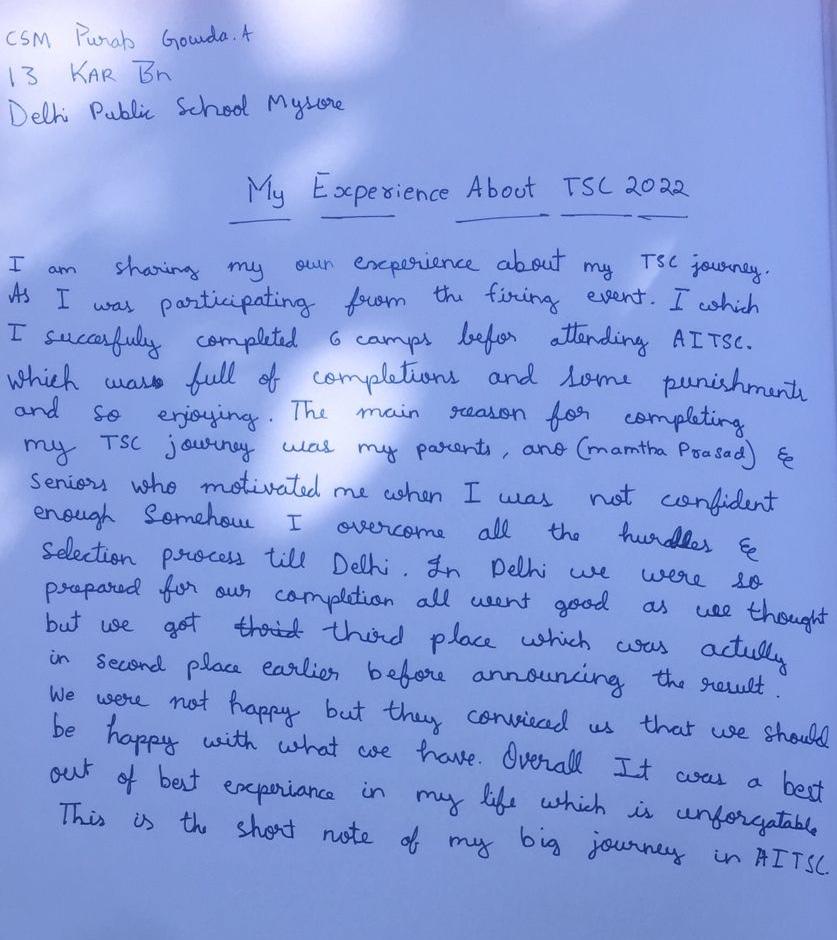 CSM Purab Gowda.A
13 KAR Bn
Delhi Public School Mysore
My Experience About TSC 2022
I am sharing my own experience about my TSC journey.
As I was participating from the firing event. I which
I succesfuly completed 6 camps befor attending AITSC.
which was full of completions and some punishments
and so enjoying. The main reason for completing
my TSC journey was my parents, ano (mamtha Prasad) &
Seniors who motivated me when I was not confident
enough Somehow I overcome all the hurdles &
Selection process till Delhi. In Delhi we were so
prepared for our completion all went good as we thought
but we got thoid third place which was actully
in second place earlier before announcing the result.
We were not happy but they convieced us that we should
be happy with what we have. Overall It was a best
out of best experiance in my life which is unforgatable
This is the short note of my big journey in AITSC.